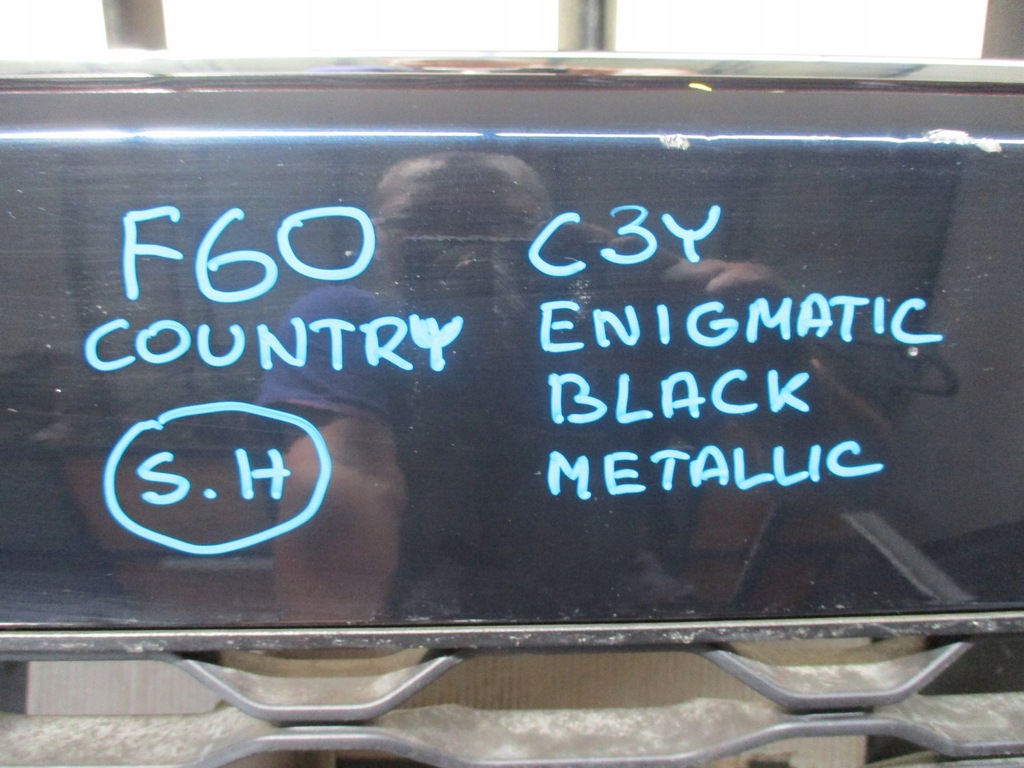 F60
COUNTRY
S.H
C3Y
ENIGMATIC
BLACK
METALLIC